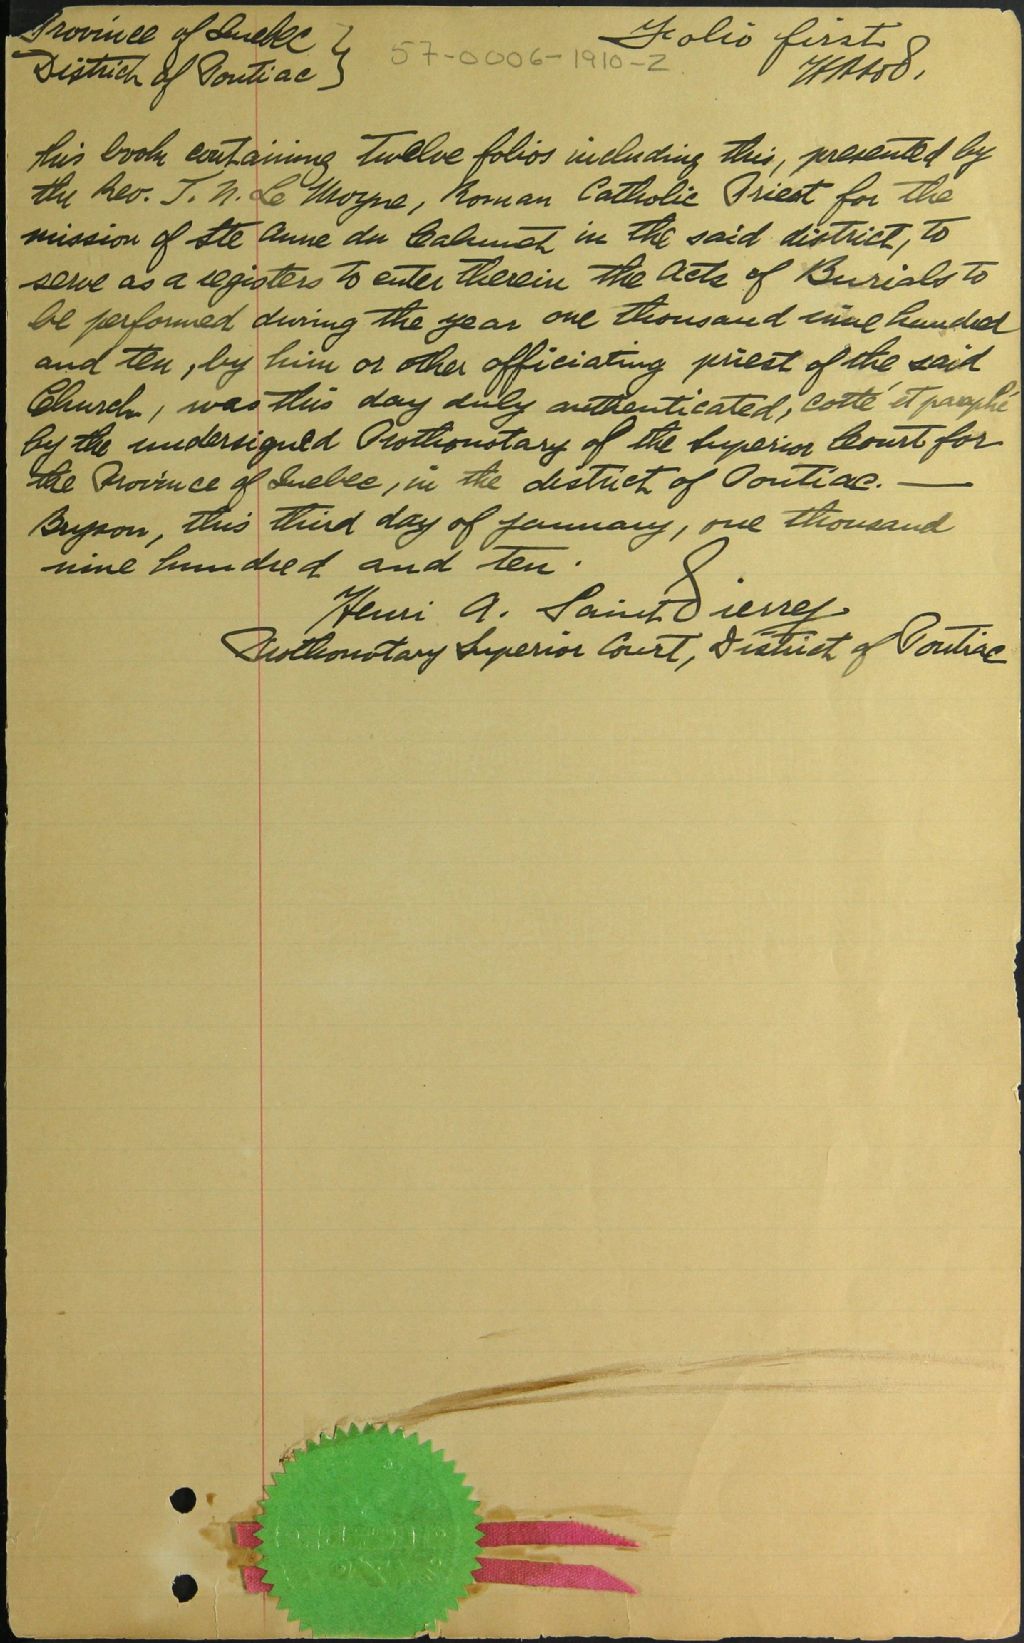 Province of Quebec }
District of Pontiac }
57-0006-1910-2
Folio first
this book containing twelve folios including this, presented by
the Rev. J. N. Le Moyne, Roman Catholic Priest for the
mission of Ste Anne du Calumet in the said district, to
serve as a registers to enter therein the Acts of Burials to
be performed during the year one thousand nine hundred
and ten, by him or other officiating priest of the said
Church, was this day duly authenticated, cotté et paraphé
by the undersigned Prothonotary of the Superior Court for
the Province of Quebec, in the district of Pontiac. —
Bryson, this third day of january, one thousand
nine hundred and ten.
Henri A. Saint Pierre
Prothonotary Superior Court, District of Pontiac